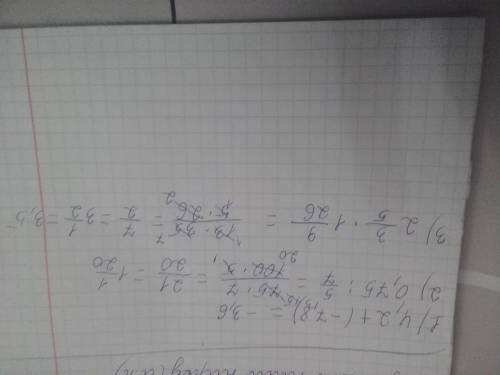 1) 4,2 + (-7,8) = -3,6
2) 0,75 : 5/7 = 75 · 7 / 100 · 5 = 21/20 = 1 1/20
3) 2 3/5 · 1 9/26 = 13 · 35 / 5 · 26 = 7/2 = 3 1/2 = 3,5